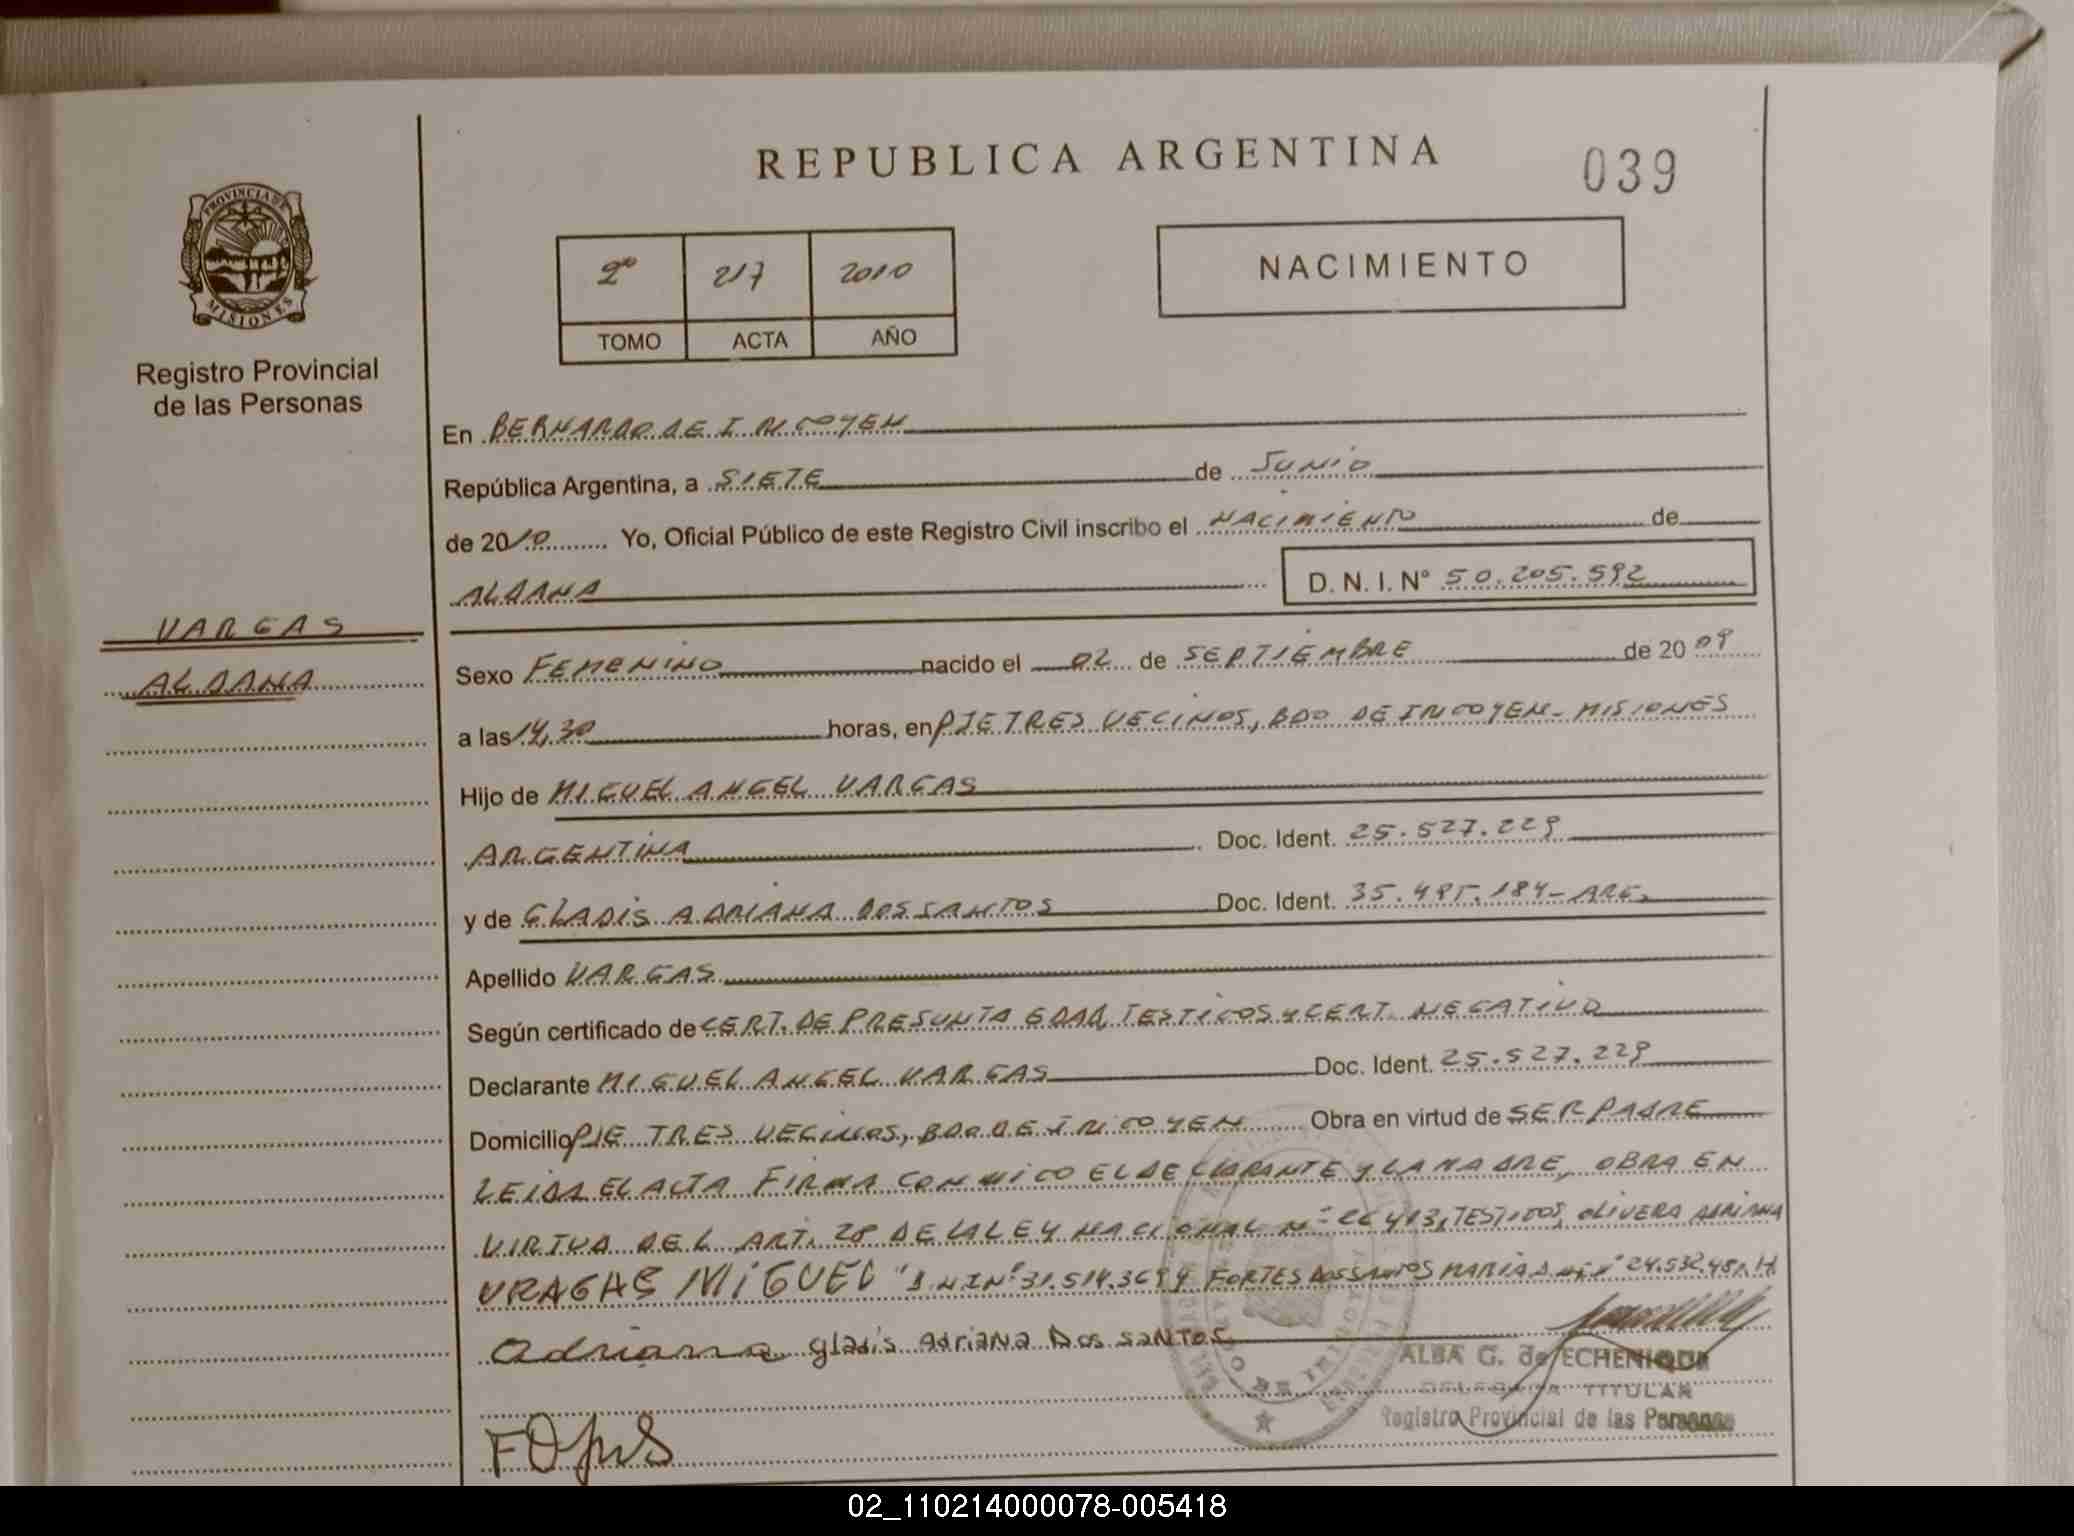 REPUBLICA ARGENTINA
039
PROVINCIA DE
MISIONES
Registro Provincial
de las Personas
2º 217 2010
TOMO ACTA AÑO
NACIMIENTO
En BERNARDO DE IRIGOYEN
República Argentina, a SIETE de JUNIO
de 2010 Yo, Oficial Público de este Registro Civil inscribo el NACIMIENTO de
ALDANA D. N. I. Nº 50.205.592
VARGAS
ALDANA
Sexo FEMENINO nacido el 02 de SEPTIEMBRE de 2009
a las 14,30 horas, en PJE TRES VECINOS, BDO DE IRIGOYEN - MISIONES
Hijo de MIGUEL ANGEL VARGAS
ARGENTINA Doc. Ident. 25.527.229
y de GLADIS ADRIANA DOS SANTOS Doc. Ident. 35.495.184 - ARG.
Apellido VARGAS
Según certificado de CERT. DE PRESUNTA EDAD, TESTIGOS Y CERT. NEGATIVO
Declarante MIGUEL ANGEL VARGAS Doc. Ident. 25.527.229
Domicilio PJE TRES VECINOS, BDO DE IRIGOYEN Obra en virtud de SER PADRE
LEIDA EL ACTA FIRMA CONMIGO EL DECLARANTE Y LA MADRE, OBRA EN
VIRTUD DEL ART. 28 DE LA LEY NACIONAL Nº 26413, TESTIGOS, OLIVERA ADRIANA
VRAGAS MIGUEL DNI Nº 31.514.369 Y FORTES DOS SANTOS MARIA DNI Nº 24.532.451.
Adriana gladis Adriana Dos SANTOS
ALBA G. de ECHENIQUE
DELEGADA TITULAR
Registro Provincial de las Personas
02_110214000078-005418